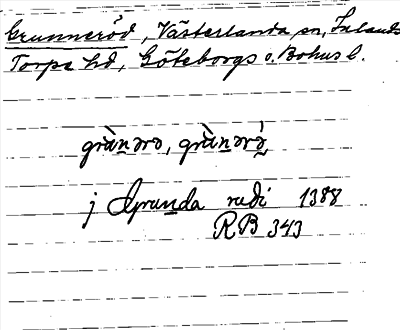 Grunneröd, Västerlanda sn, Inlands
Torpe hd, Göteborgs o. Bohus l.
grànərə, grànərə́
j Grunda rudi 1388
RB 343